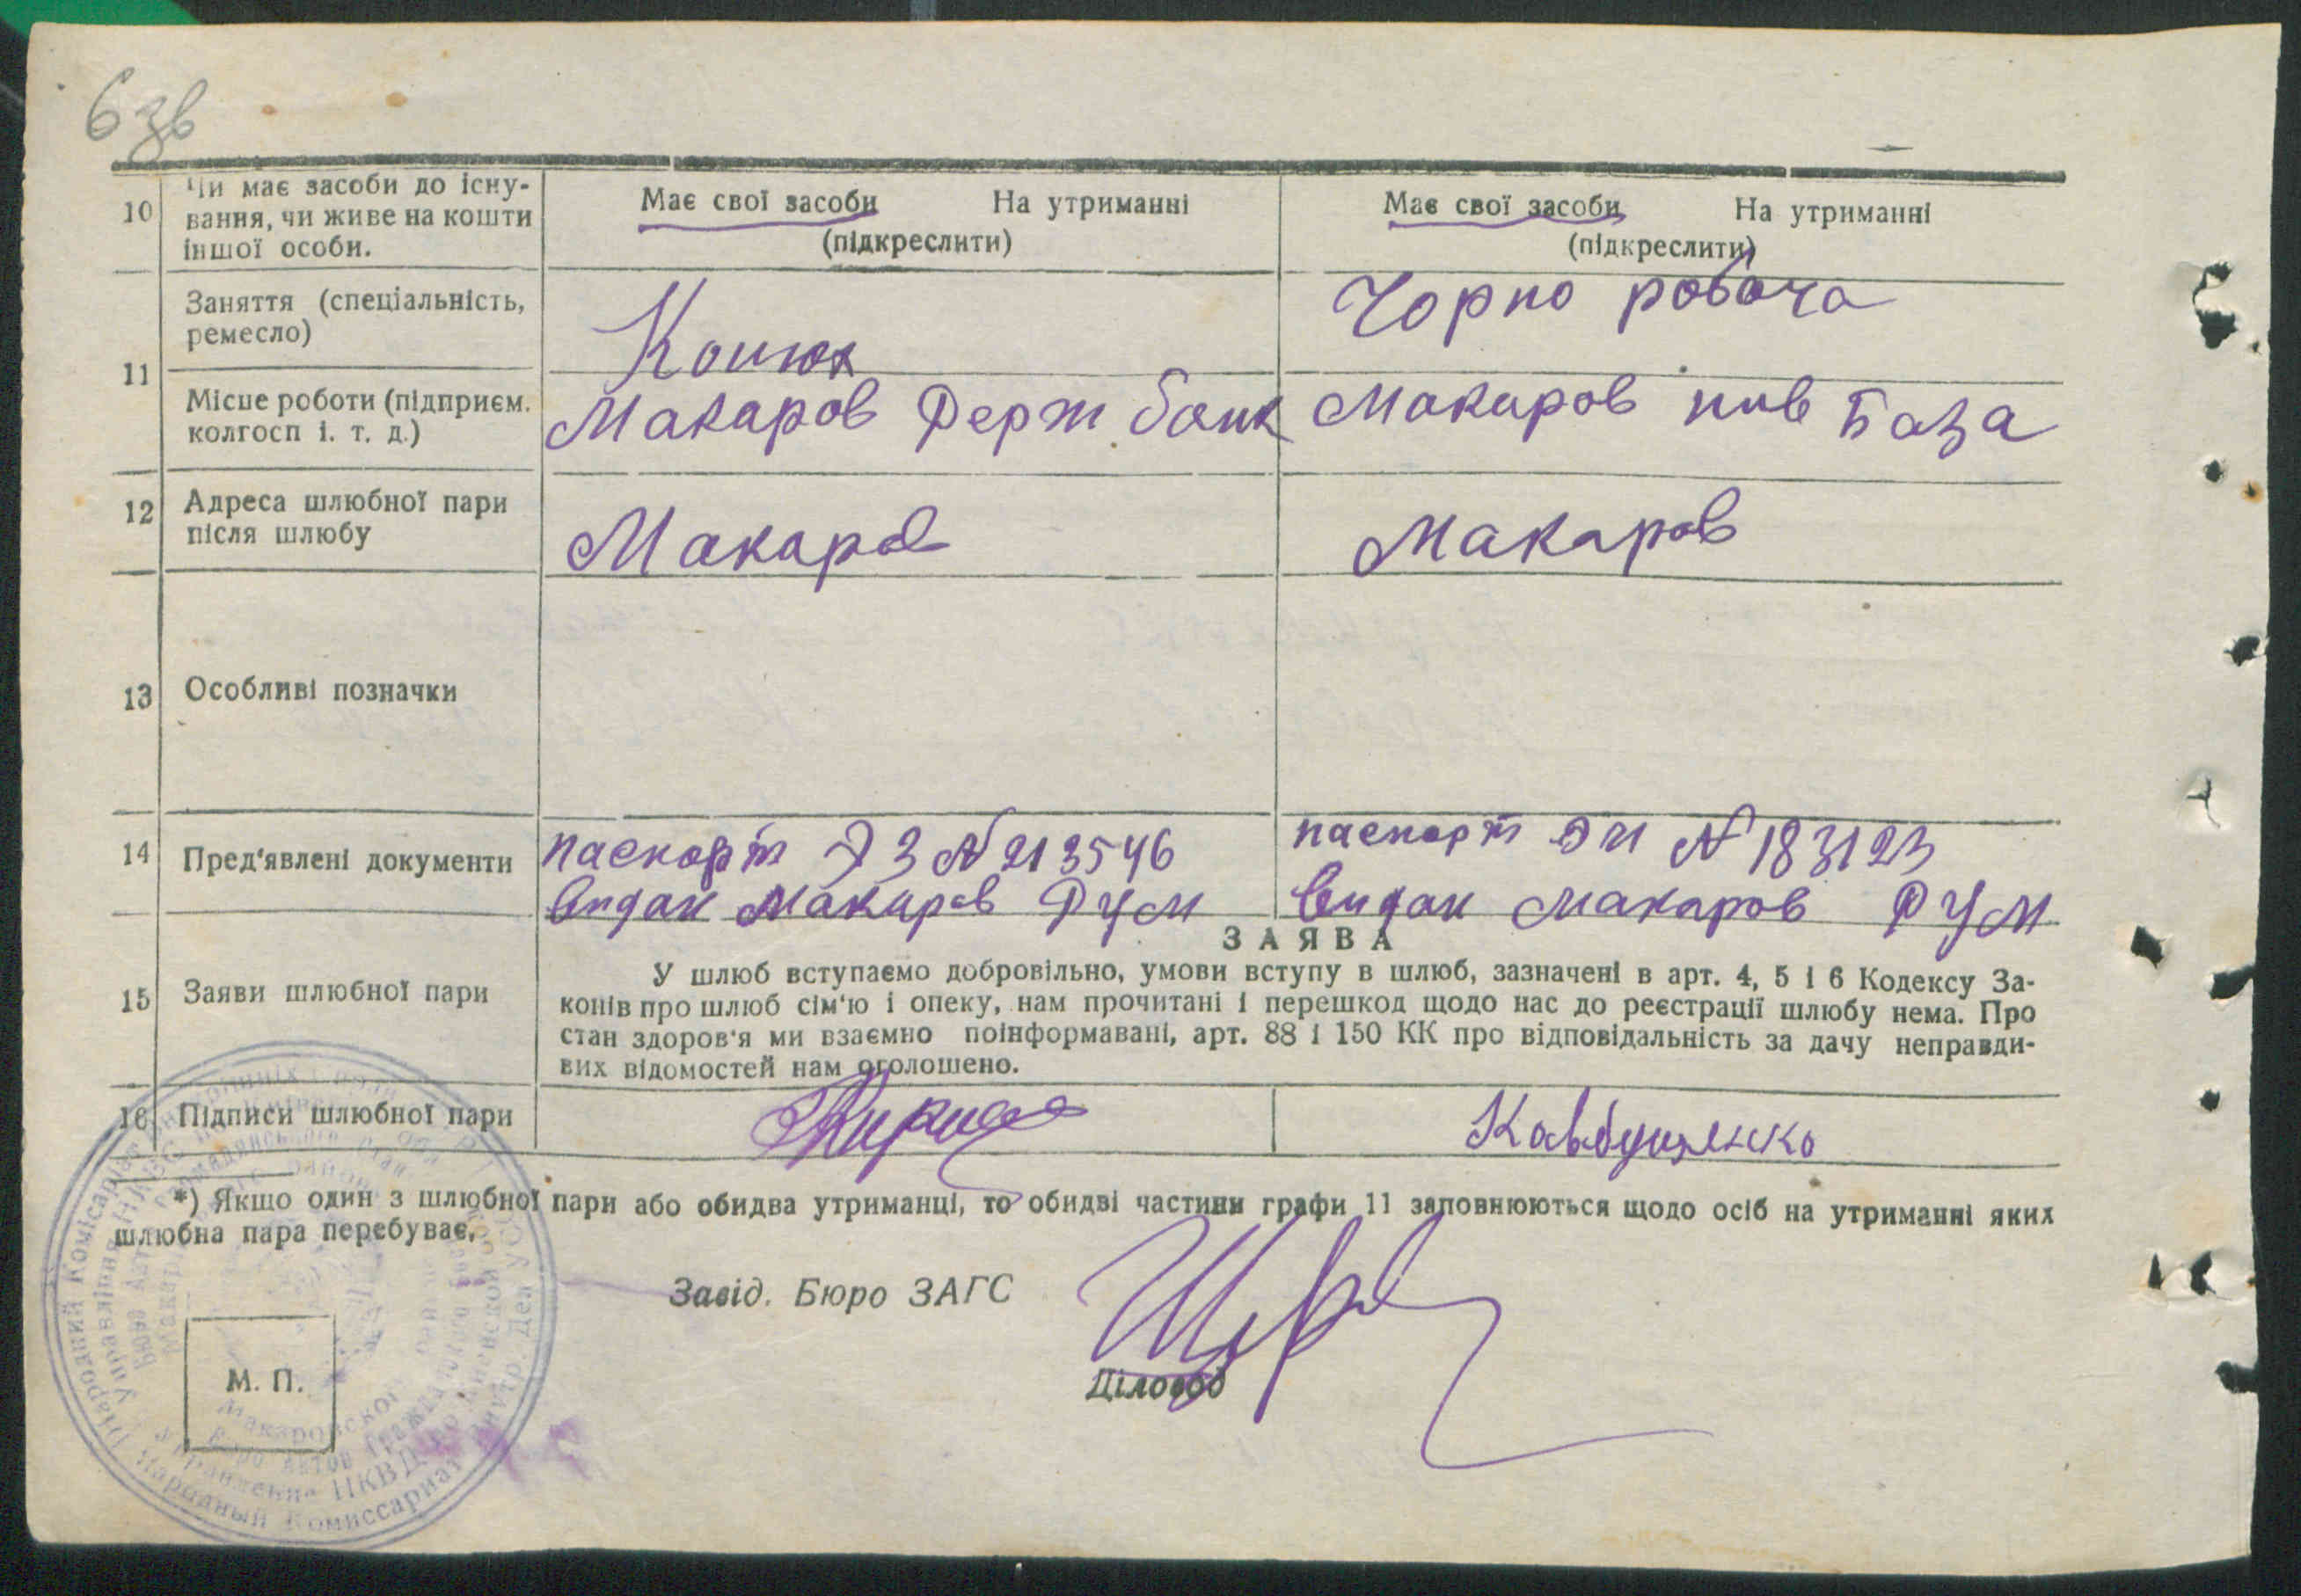 6 зв
10 Чи має засоби до існу-
вання, чи живе на кошти
іншої особи.
Має свої засоби На утриманні
(підкреслити)
Має свої засоби На утриманні
(підкреслити)
11
Заняття (спеціальність,
ремесло)
Конюх
Чорно робоча
Місце роботи (підприєм.
колгосп і. т. д.)
Макаров Держ банк
Макаров пив База
12 Адреса шлюбної пари
після шлюбу
Макаров
Макаров
13 Особливі позначки
14 Пред'явлені документи
паспорт ЭЗ № 213546
видан Макаров РУМ
паспорт ЭИ № 183123
видан Макаров РУМ
ЗАЯВА
15 Заяви шлюбної пари
У шлюб вступаємо добровільно, умови вступу в шлюб, зазначені в арт. 4, 5 і 6 Кодексу За-
конів про шлюб сім'ю і опеку, нам прочитані і перешкод щодо нас до реєстрації шлюбу нема. Про
стан здоров'я ми взаємно поінформавані, арт. 88 і 150 КК про відповідальність за дачу неправди-
вих відомостей нам оголошено.
16 Підписи шлюбної пари
*) Якщо один з шлюбної пари або обидва утриманці, то обидві частини графи 11 заповнюються щодо осіб на утриманні яких
шлюбна пара перебуває.
Завід. Бюро ЗАГС
Діловод
М. П.
Народний Комісаріат
Управління НКВС
Управление НКВД
Народный Комиссариат